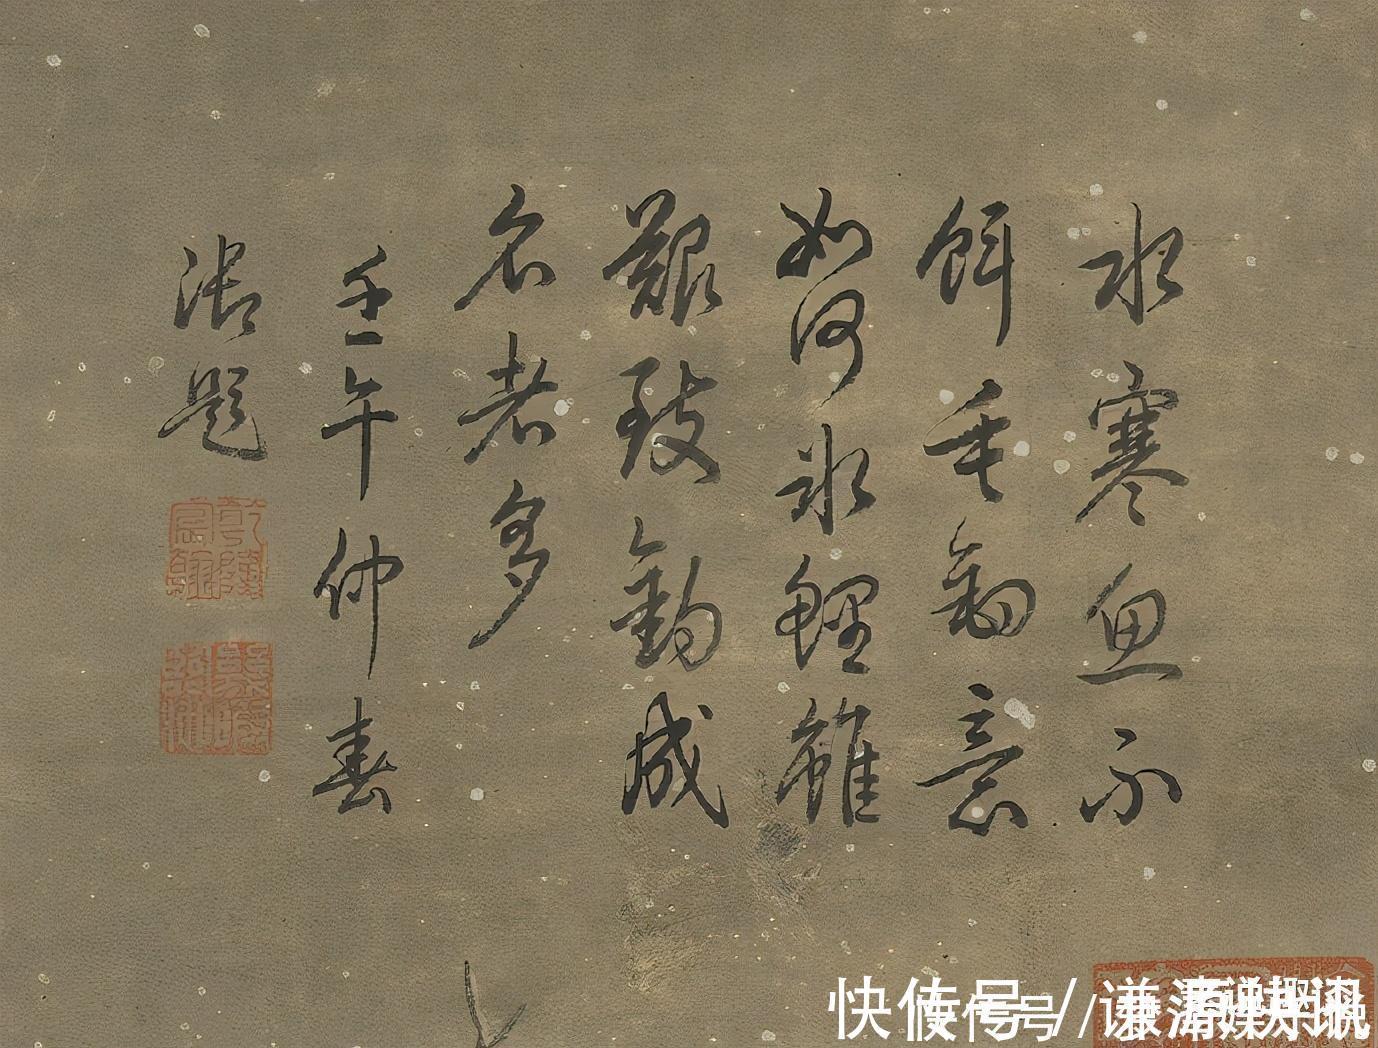 水寒魚不
餌垂釣意
如何氷鯉雖
艱致釣成
名者多
壬午仲春
御題
乾隆
宸翰
快传号/